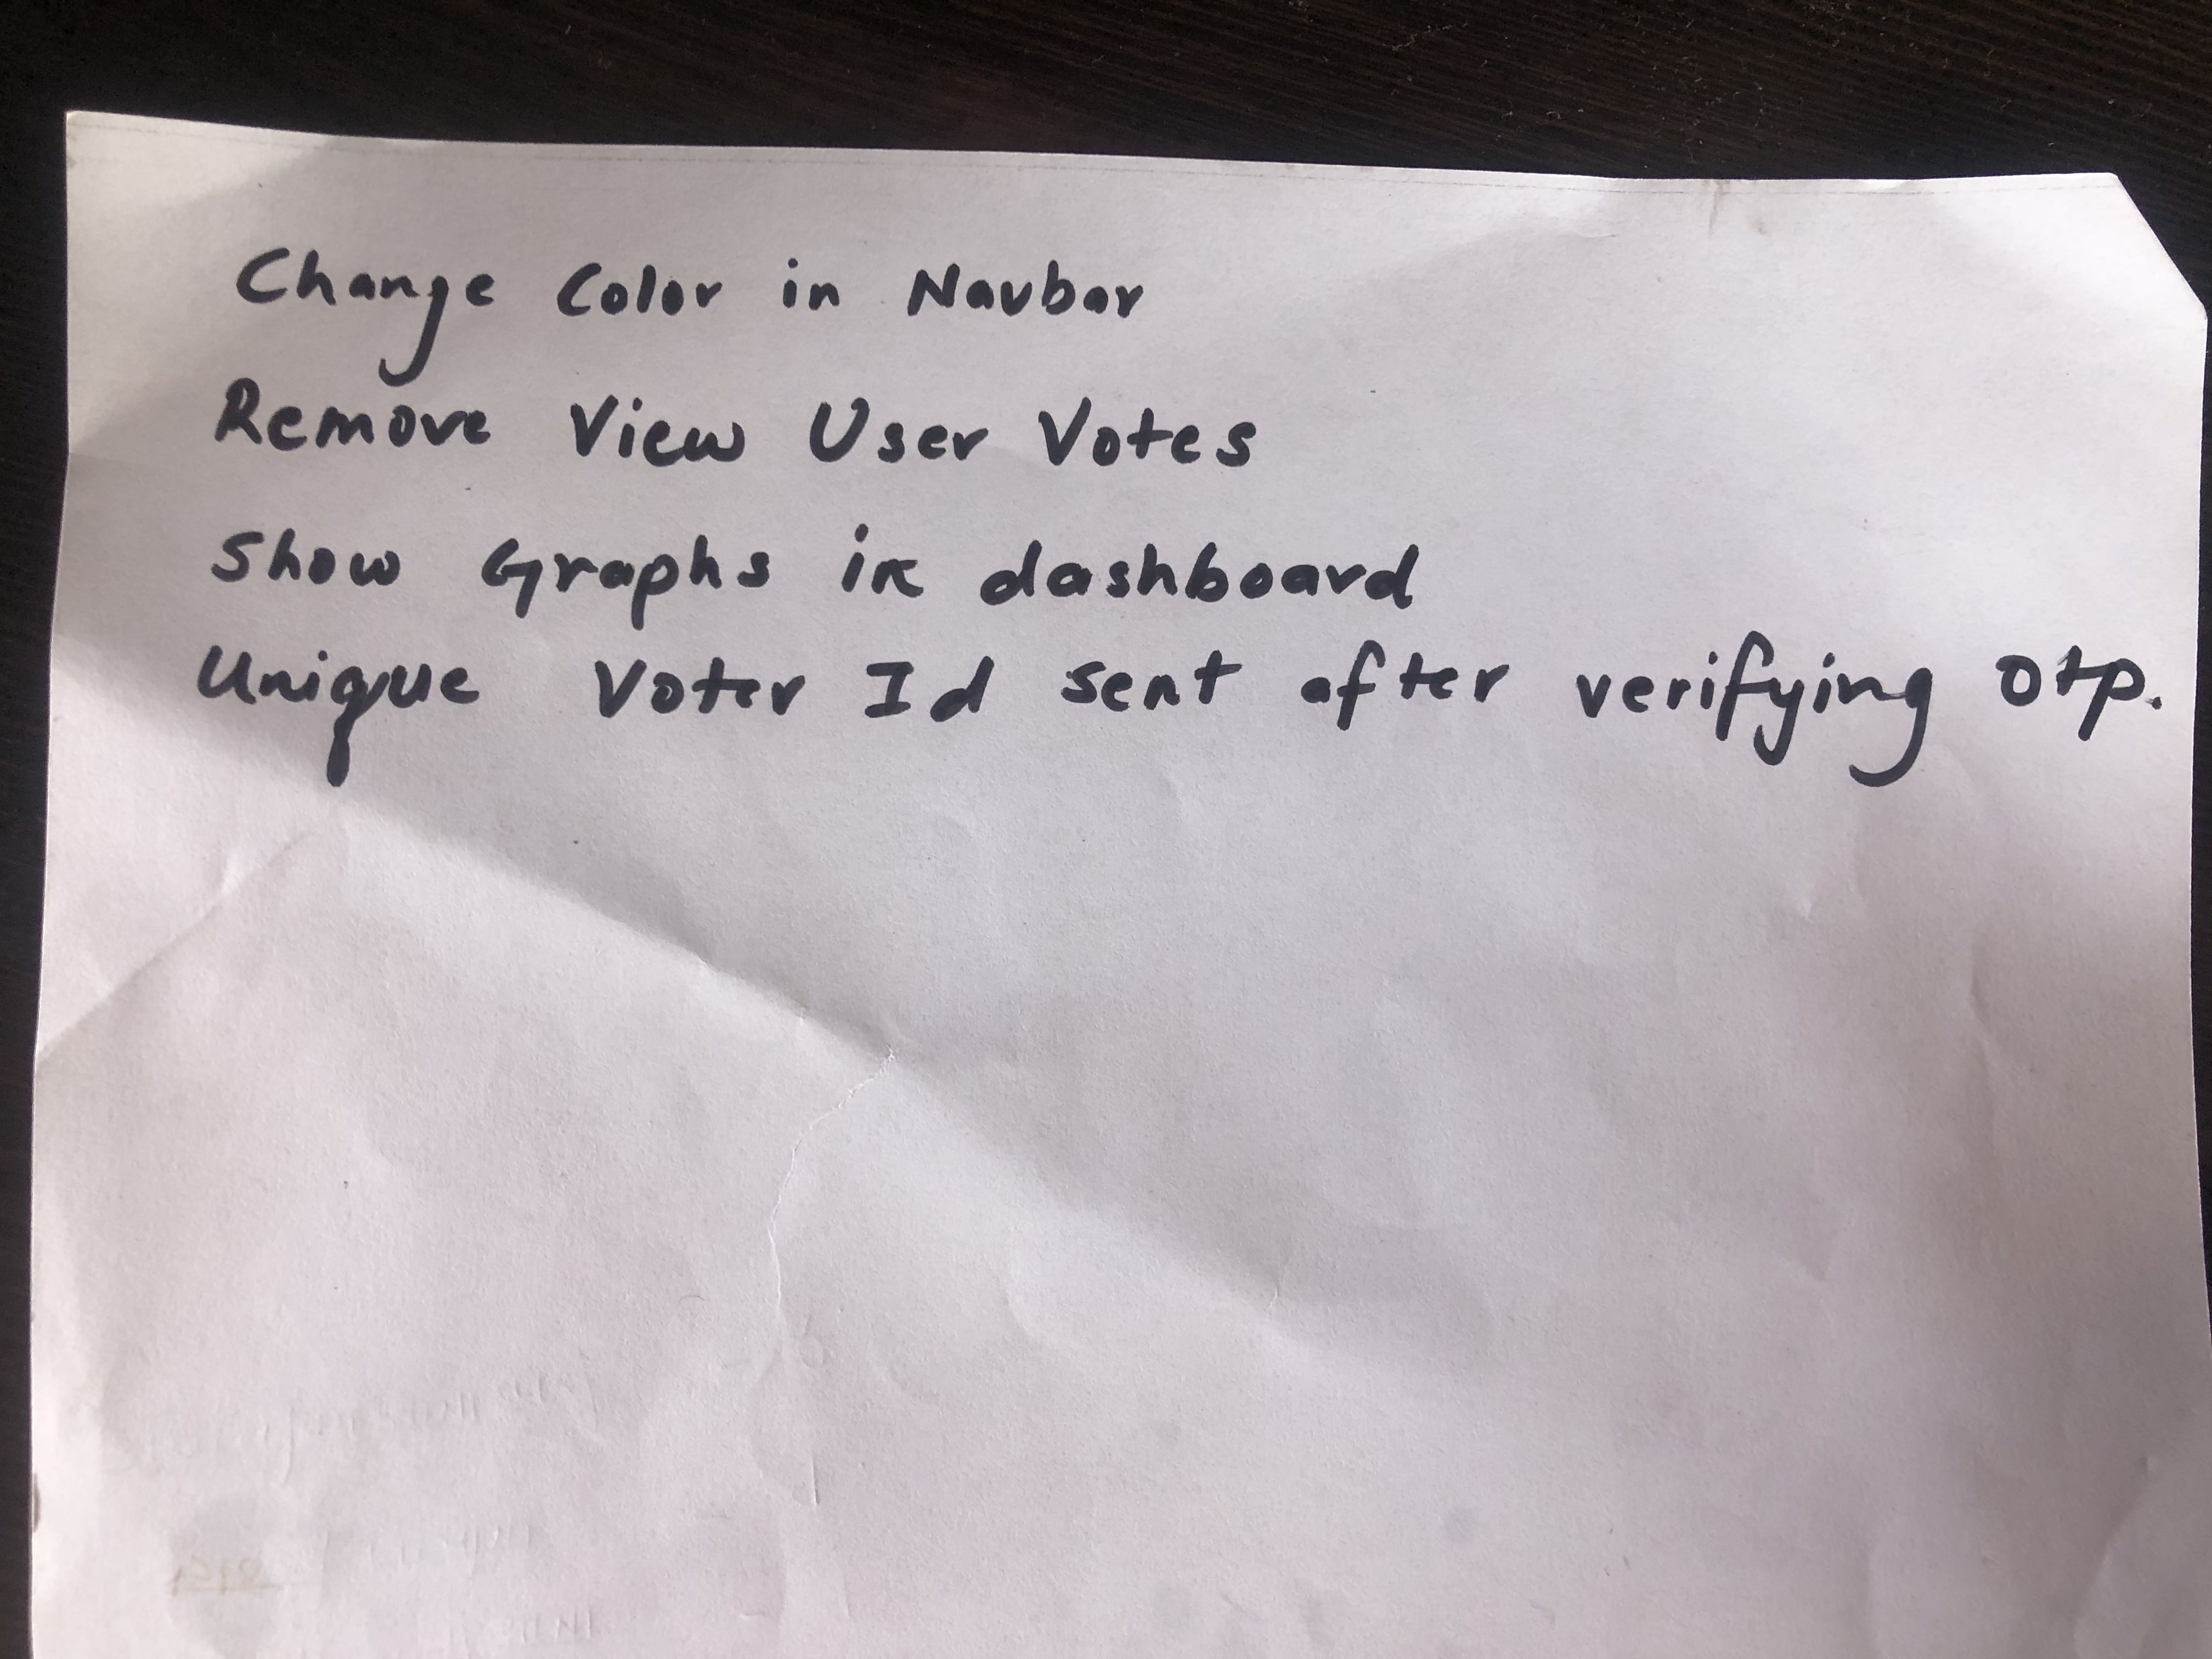 Change Color in Navbar
Remove View User Votes
Show Graphs in dashboard
Unique Voter Id sent after verifying otp.